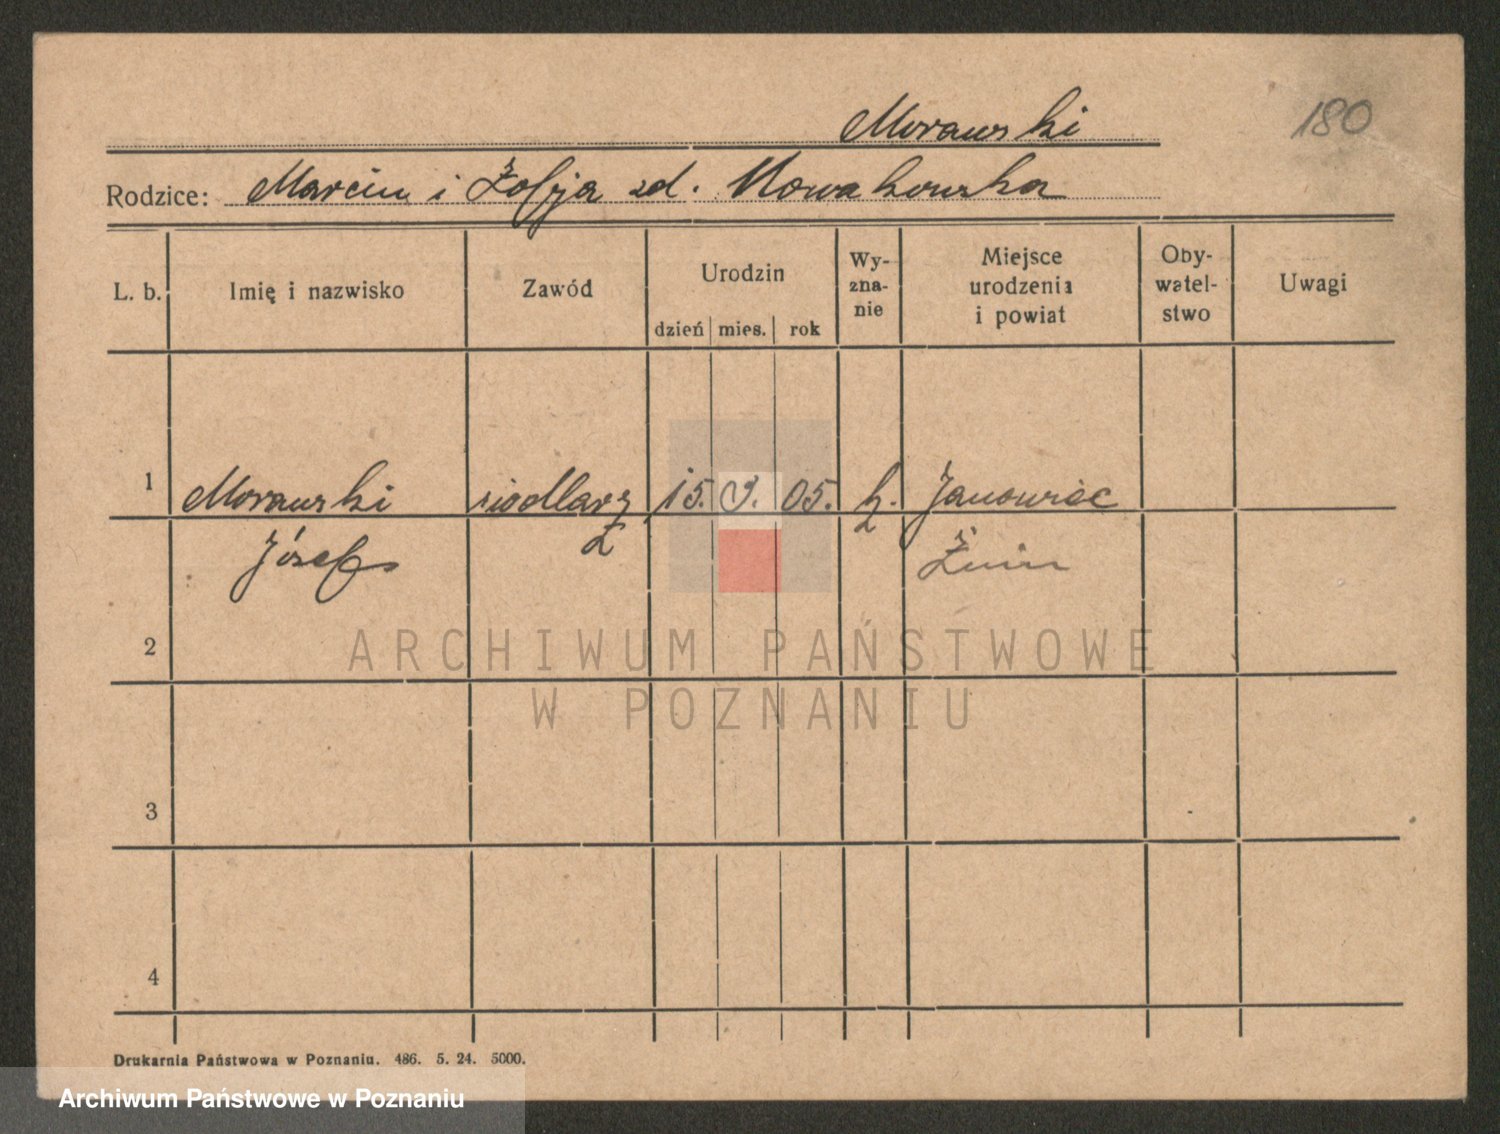 Morawski
180
Rodzice: Marcin i Zofja zd. Nowakowska
L. b. Imię i nazwisko Zawód Urodzin dzień mies. rok Wy-zna-nie Miejsce urodzenia i powiat Oby-watel-stwo Uwagi
1 Morawski siodlarz 15. 9. 05. k. Janowiec
Józef Ż Żnin
2
ARCHIWUM PAŃSTWOWE
W POZNANIU
3
4
Drukarnia Państwowa w Poznaniu. 486. 5. 24. 5000.
Archiwum Państwowe w Poznaniu